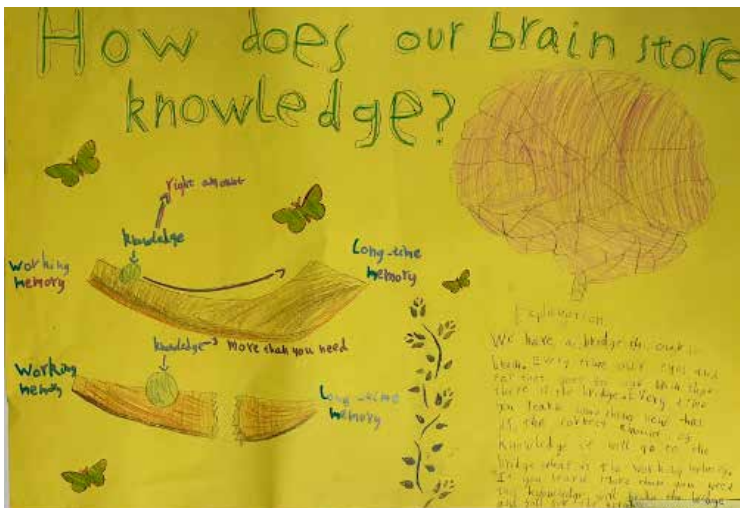 How does our brain store
knowledge?
right amount
knowledge
Working
memory
Long-time
memory
knowledge → More than you need
Working
memory
Long-time
memory
Explanation
We have a bridge in our
brain. Every time our eyes and
to our brain
there is the bridge. Every time
you learn something new that
is the correct amount of
knowledge it will go to the
bridge is the working memory.
If you learn more than you need
the knowledge will break the bridge
and fall